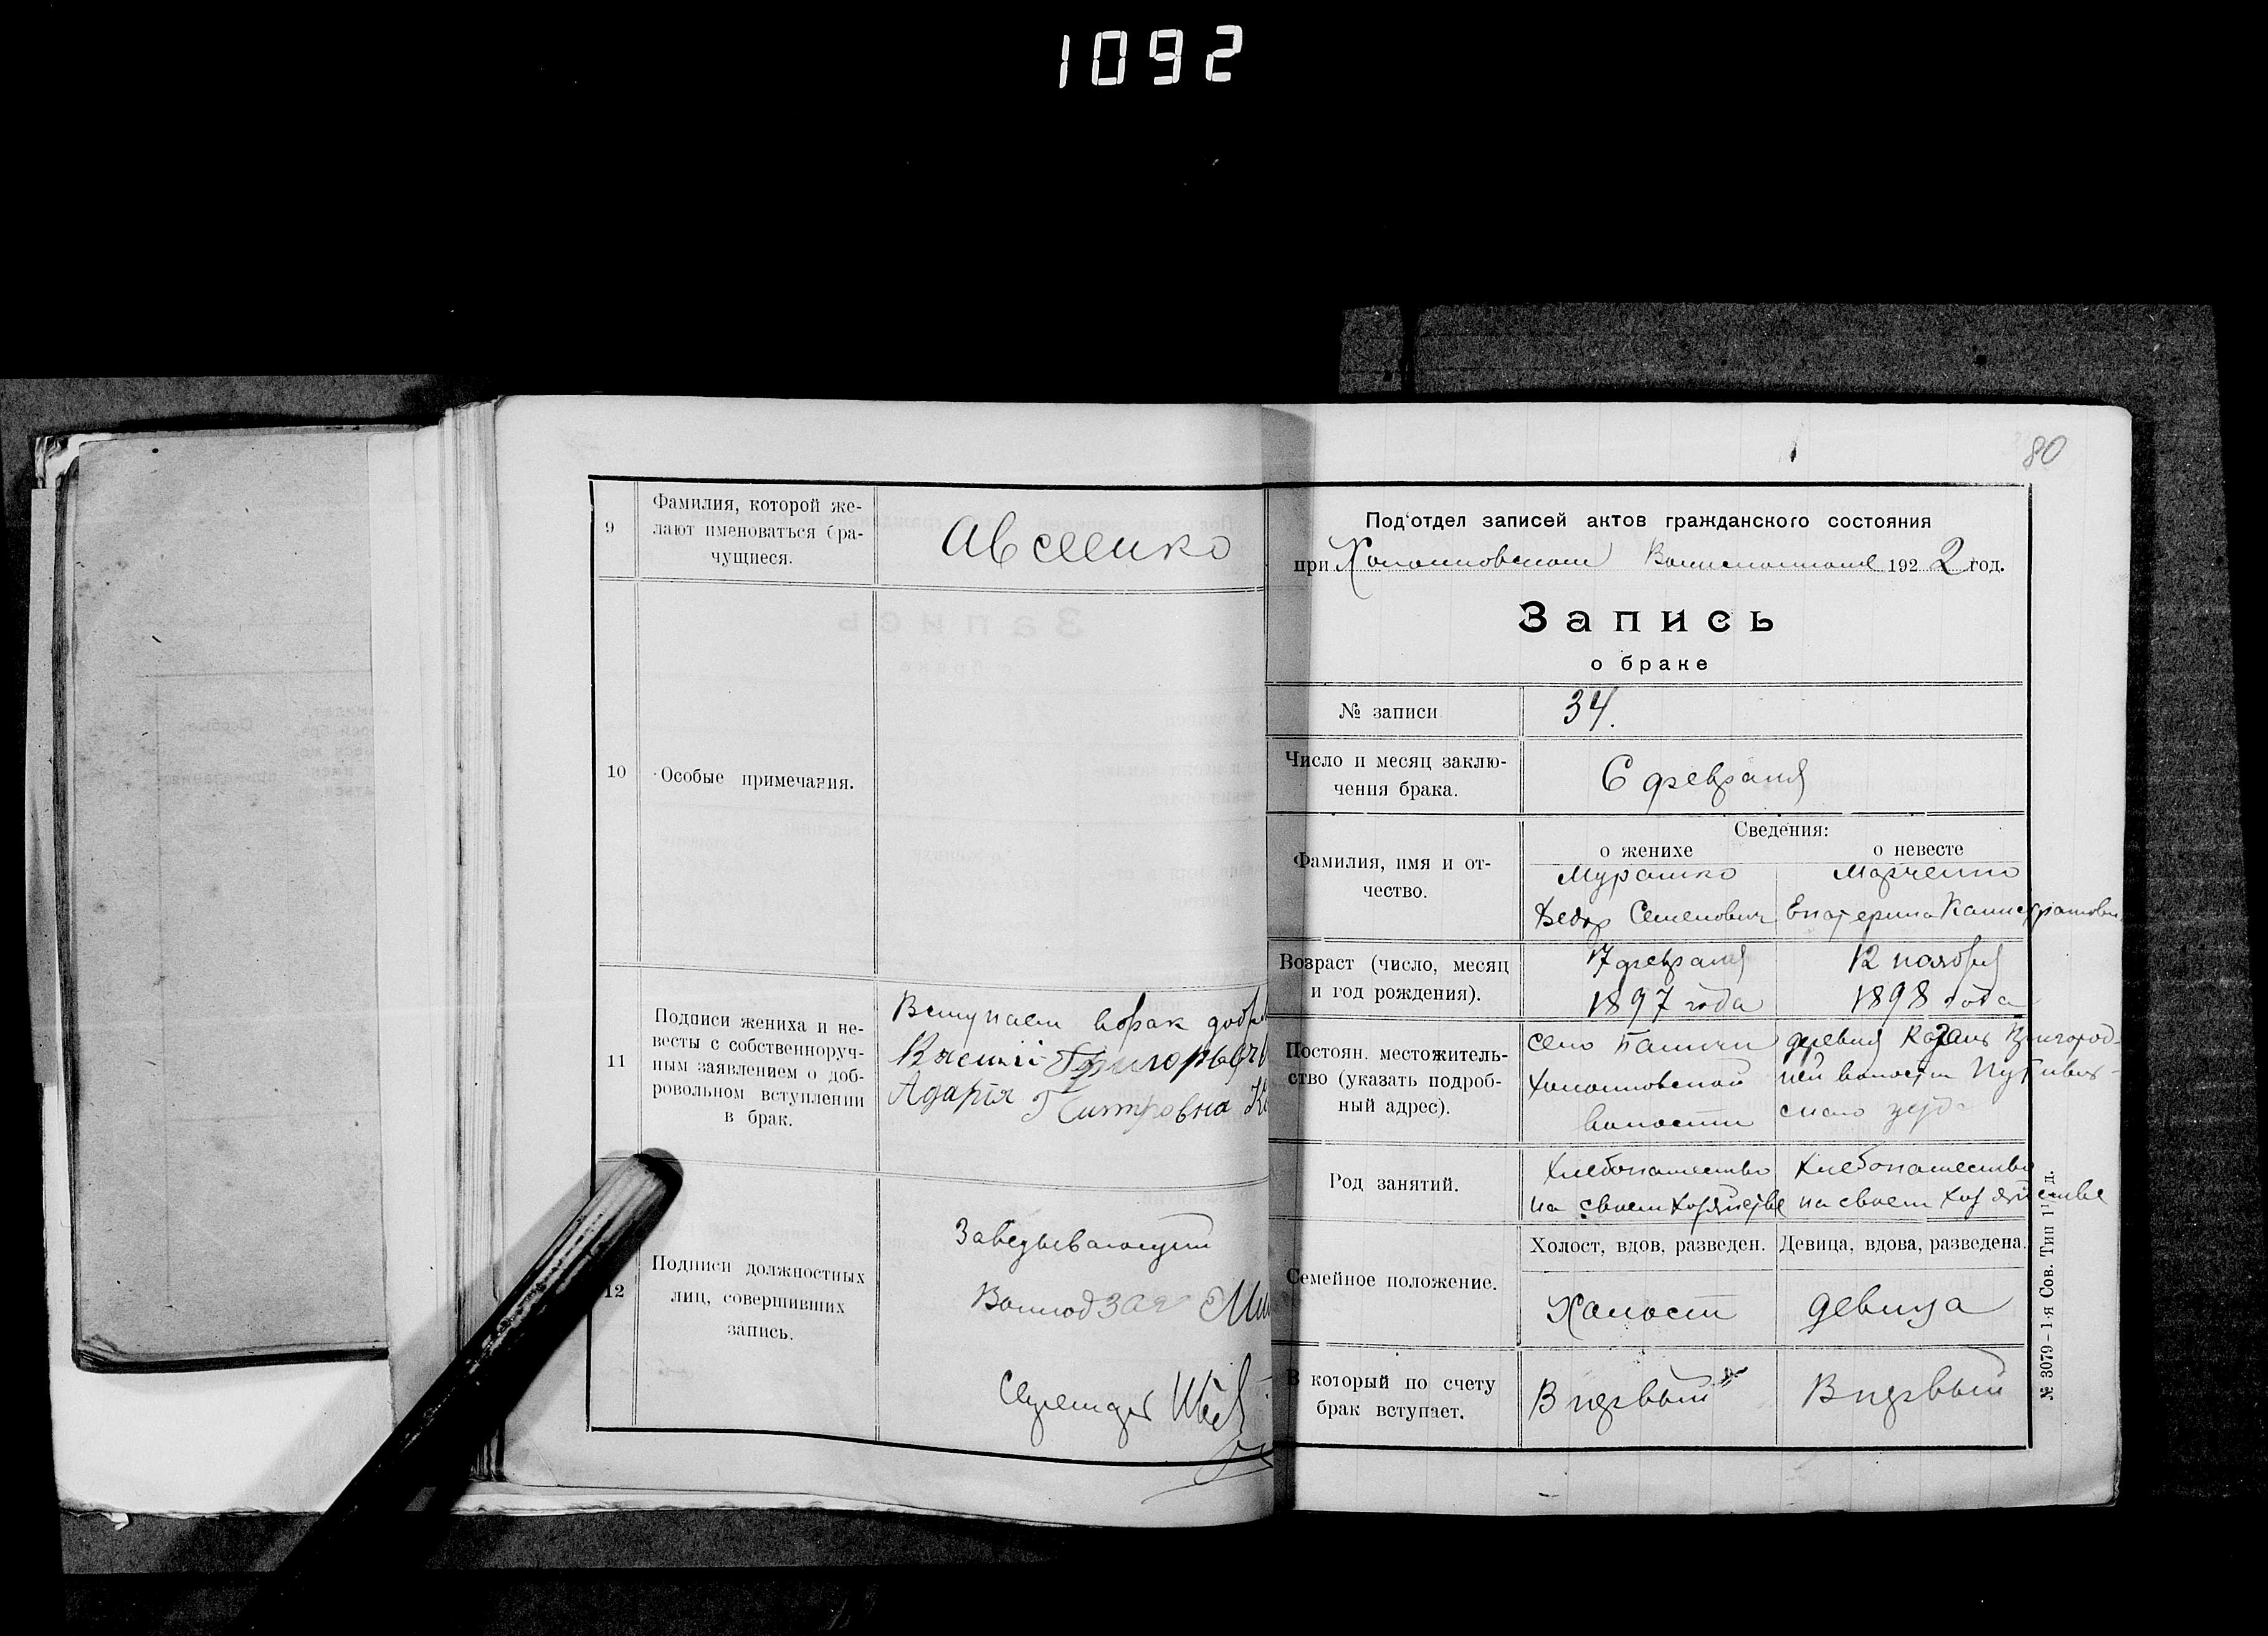 1092
80
9
Фамилия, которой же-
лают именоваться бра-
чущиеся.
Авсеенко
10
Особые примечания.
11
Подписи жениха и не-
весты с собственноруч-
ным заявлением о доб-
ровольном вступлении
в брак.
Вступаем в брак
12
Подписи должностных
лиц, совершивших
запись.
Заведывающий
Подотдел записей актов гражданского состояния
при 1922 год.
Запись
о браке
№ записи
34.
Число и месяц заклю-
чения брака.
6 февраля
Сведения:
о женихе
о невесте
Фамилия, имя и от-
чество.
Мурашко
Федор Семенович
Марченко
Екатерина
Возраст (число, месяц
и год рождения).
17 февраля
1897 года
12 ноября
1898 года
Постоян. местожитель-
ство (указать подроб-
ный адрес).
село
волости
деревня Казань Пригород-
ней волости Путивль-
скаго уезда
Род занятий.
Хлебопашество
на своем хозяйстве
Хлебопашество
на своем хозяйстве
Семейное положение.
Холост, вдов, разведен.
Девица, вдова, разведена.
Холост
девица
В который по счету
брак вступает.
В первый
В первый
№ 3079 – 1-я Сов. Тип